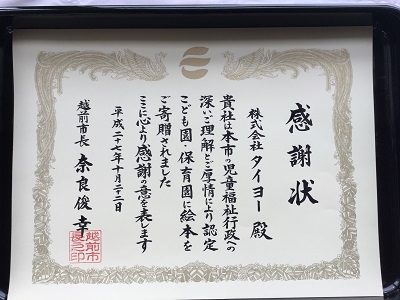 感謝状
株式会社 タイヨー 殿
貴社は本市の児童福祉行政への
深いご理解とご厚情により認定
こども園・保育園に絵本を
ご寄贈されました
ここに心より感謝の意を表します
平成二十七年十月二十二日
越前市長 奈良俊幸
越前市
長之印